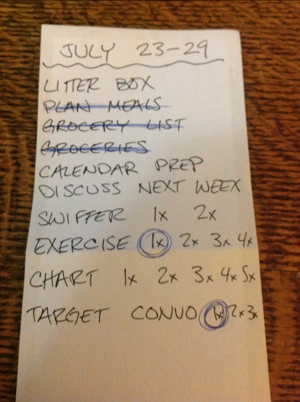 JULY 23-29
LITTER BOX
PLAN MEALS
GROCERY LIST
GROCERIES
CALENDAR PREP
DISCUSS NEXT WEEK
SWIFFER 1x 2x
EXERCISE 1x 2x 3x 4x
CHART 1x 2x 3x 4x 5x
TARGET CONVO 1x 2x 3x